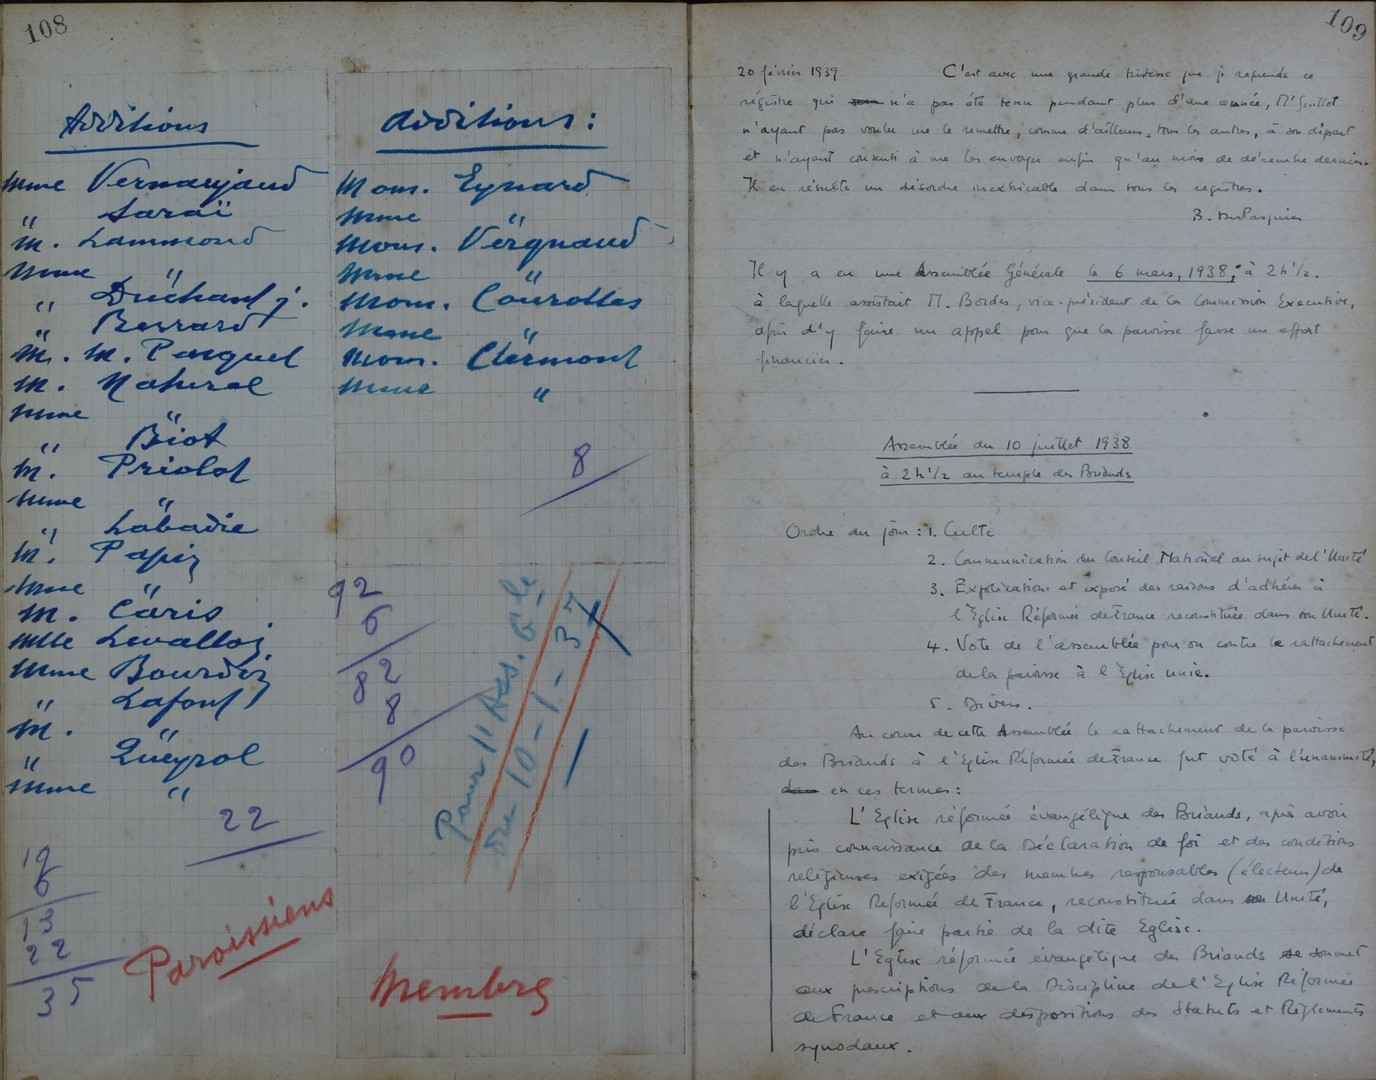 108
Additions
Mme Vernaujaud
" Saraï
M. Lammond
Mme "
" Duchant j.
" Berrard
M. M. Pasquet
M. Naturel
Mme "
" Biot
M. Priolot
Mme "
" Labadie
M. Papin
Mme "
M. Caris
Mlle Levallois
Mme Bourdin
" Lafont
M. "
" Queyrol
Mme "
22
19
6
13
22
35
Paroissiens
Additions :
Mons. Eynard
Mme "
Mons. Vergnaud
Mme "
Mons. Courolles
Mme "
Mons. Clermont
Mme "
8
92
6
82
8
90
Pour 11 Ass. G le
du 10 - 1 - 37
Membres
109
20 février 1939 C'est avec une grande tristesse que je reprends ce
régistre qui n'a pas été tenu pendant plus d'une année, Mr Guillot
n'ayant pas voulu me le remettre, comme d'ailleurs tous les autres, à son départ
et n'ayant consenti à me les envoyer enfin qu'au mois de décembre dernier.
Il en résulte un désordre inextricable dans tous les registres.
B. DuPasquier
Il y a eu une Assemblée Générale le 6 mars, 1938, à 2h 1/2.
à laquelle assistait M. Bordes, vice-président de la Commission Exécutive,
afin d'y faire un appel pour que la paroisse fasse un effort
financier.
Assemblée du 10 juillet 1938
à 2h 1/2 au temple des Briands
Ordre du jour : 1. Culte
2. Communication du Conseil National au sujet de l'Unité
3. Explications et exposé des raisons d'adhérer à
l'Eglise Réformée de France reconstituée dans son Unité.
4. Vote de l'assemblée pour ou contre le rattachement
de la paroisse à l'Eglise unie.
5. Divers.
Au cours de cette Assemblée le rattachement de la paroisse
des Briands à l'Eglise Réformée de France fut voté à l'unanimité,
dans en ces termes :
L'Eglise réformée évangélique des Briands, après avoir
pris connaissance de la Déclaration de foi et des conditions
religieuses exigées des membres responsables (électeurs) de
l'Eglise Réformée de France, reconstituée dans son Unité,
déclare faire partie de la dite Eglise.
L'Eglise réformée évangélique des Briands se soumet
aux prescriptions de la Discipline de l'Eglise Réformée
de France et aux dispositions des Statuts et Règlements
synodaux.